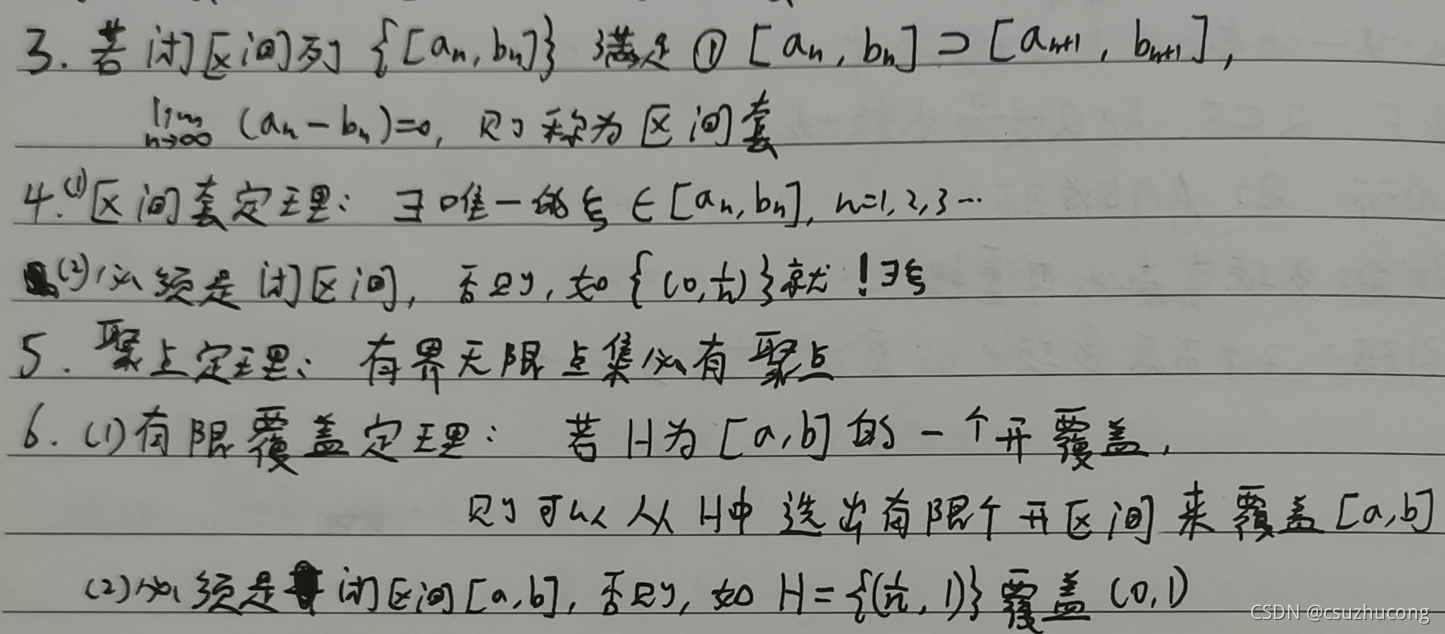 3. 若闭区间列 {[aₙ, bₙ]} 满足 ① [aₙ, bₙ] ⊃ [aₙ₊₁, bₙ₊₁],
lim n→∞ (aₙ - bₙ)=0, 则称为区间套
4.(1)区间套定理: ∃唯一的ξ ∈ [aₙ, bₙ], n=1,2,3…
(2)必须是闭区间, 否则, 如 {(0, 1/n)} 就!∃ξ
5. 聚点定理: 有界无限点集必有聚点
6. (1)有限覆盖定理: 若 H为 [a,b] 的一个开覆盖,
则可以从 H中选出有限个开区间来覆盖 [a,b]
(2)必须是闭区间 [a,b], 否则, 如 H = {(1/n, 1)} 覆盖 (0,1)
CSDN @csuzhucong